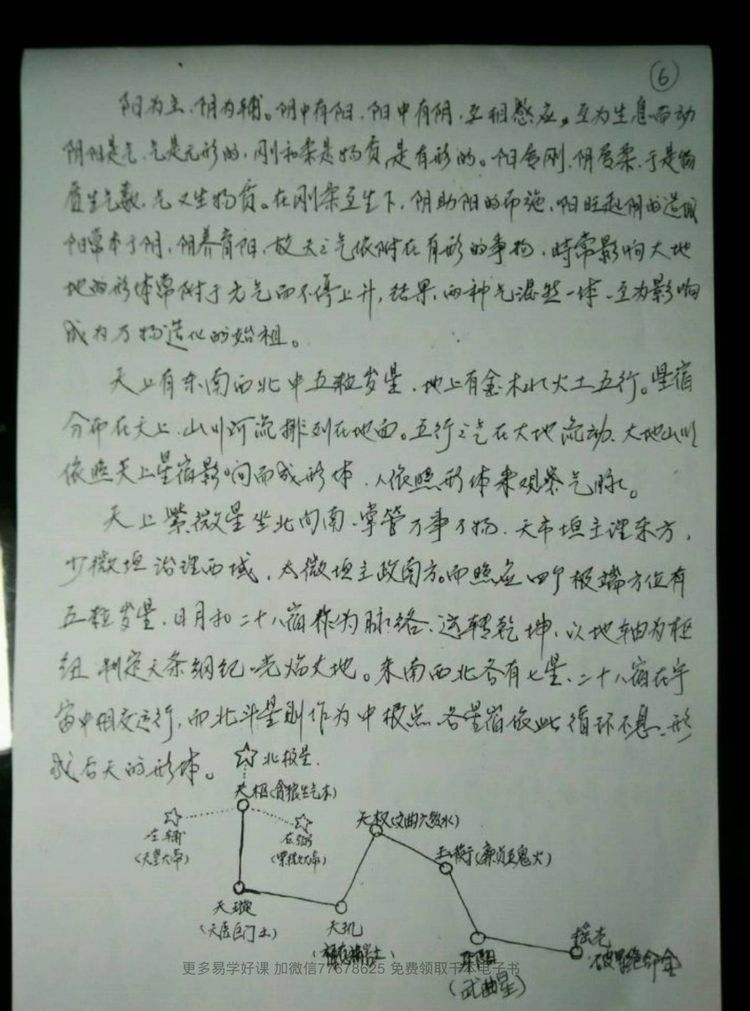 ⑥
阳为主、阴为辅。阴中有阳、阳中有阴、互相感应。互为生息而动
阴阳是气、气是无形的、刚和柔是物质、是有形的。阳质刚、阴质柔、于是物
质生气数、气又生物质。在刚柔互生下、阴助阳的布施、阳旺起阴的造
阳常本于阴、阴养育阳、故天之气依附在有形的事物、時常影响大地
地的形体常附于元气而不停上升,结果、两种气混然一体、互为影响
成为万物造化的始祖。
天上有东南西北中五粒岁星、地上有金木水火土五行。星宿
分布在天上、山川河流排列在地面。五行之气在大地流动、大地山川
依照天上星宿影响而成形体、人依照形体来观察气脉。
天上紫微星坐北向南、掌管万事万物、天市垣主理东方,
少微垣治理西域、太微垣主政南方。而照应四个极端方位有
五粒岁星、日月和二十八宿作为脉络、运转乾坤、以地轴为枢
纽 制定天条纲纪 光焰大地。东南西北各有七星、二十八宿在宇
宙中相交运行,而北斗星则作为中极点、各星宿依此循环不息、形
成后天的形体。
北极星
天枢(贪狼生气木)
左辅
(天皇大帝)
右弼
(紫微大帝)
天权(文曲六煞水)
玉衡(廉贞五鬼火)
天璇
(天医巨门土)
天玑
(禄存祸害土)
开阳
(武曲星)
摇光
破军绝命金
更多易学好课 加微信77678625 免费领取千本电子书